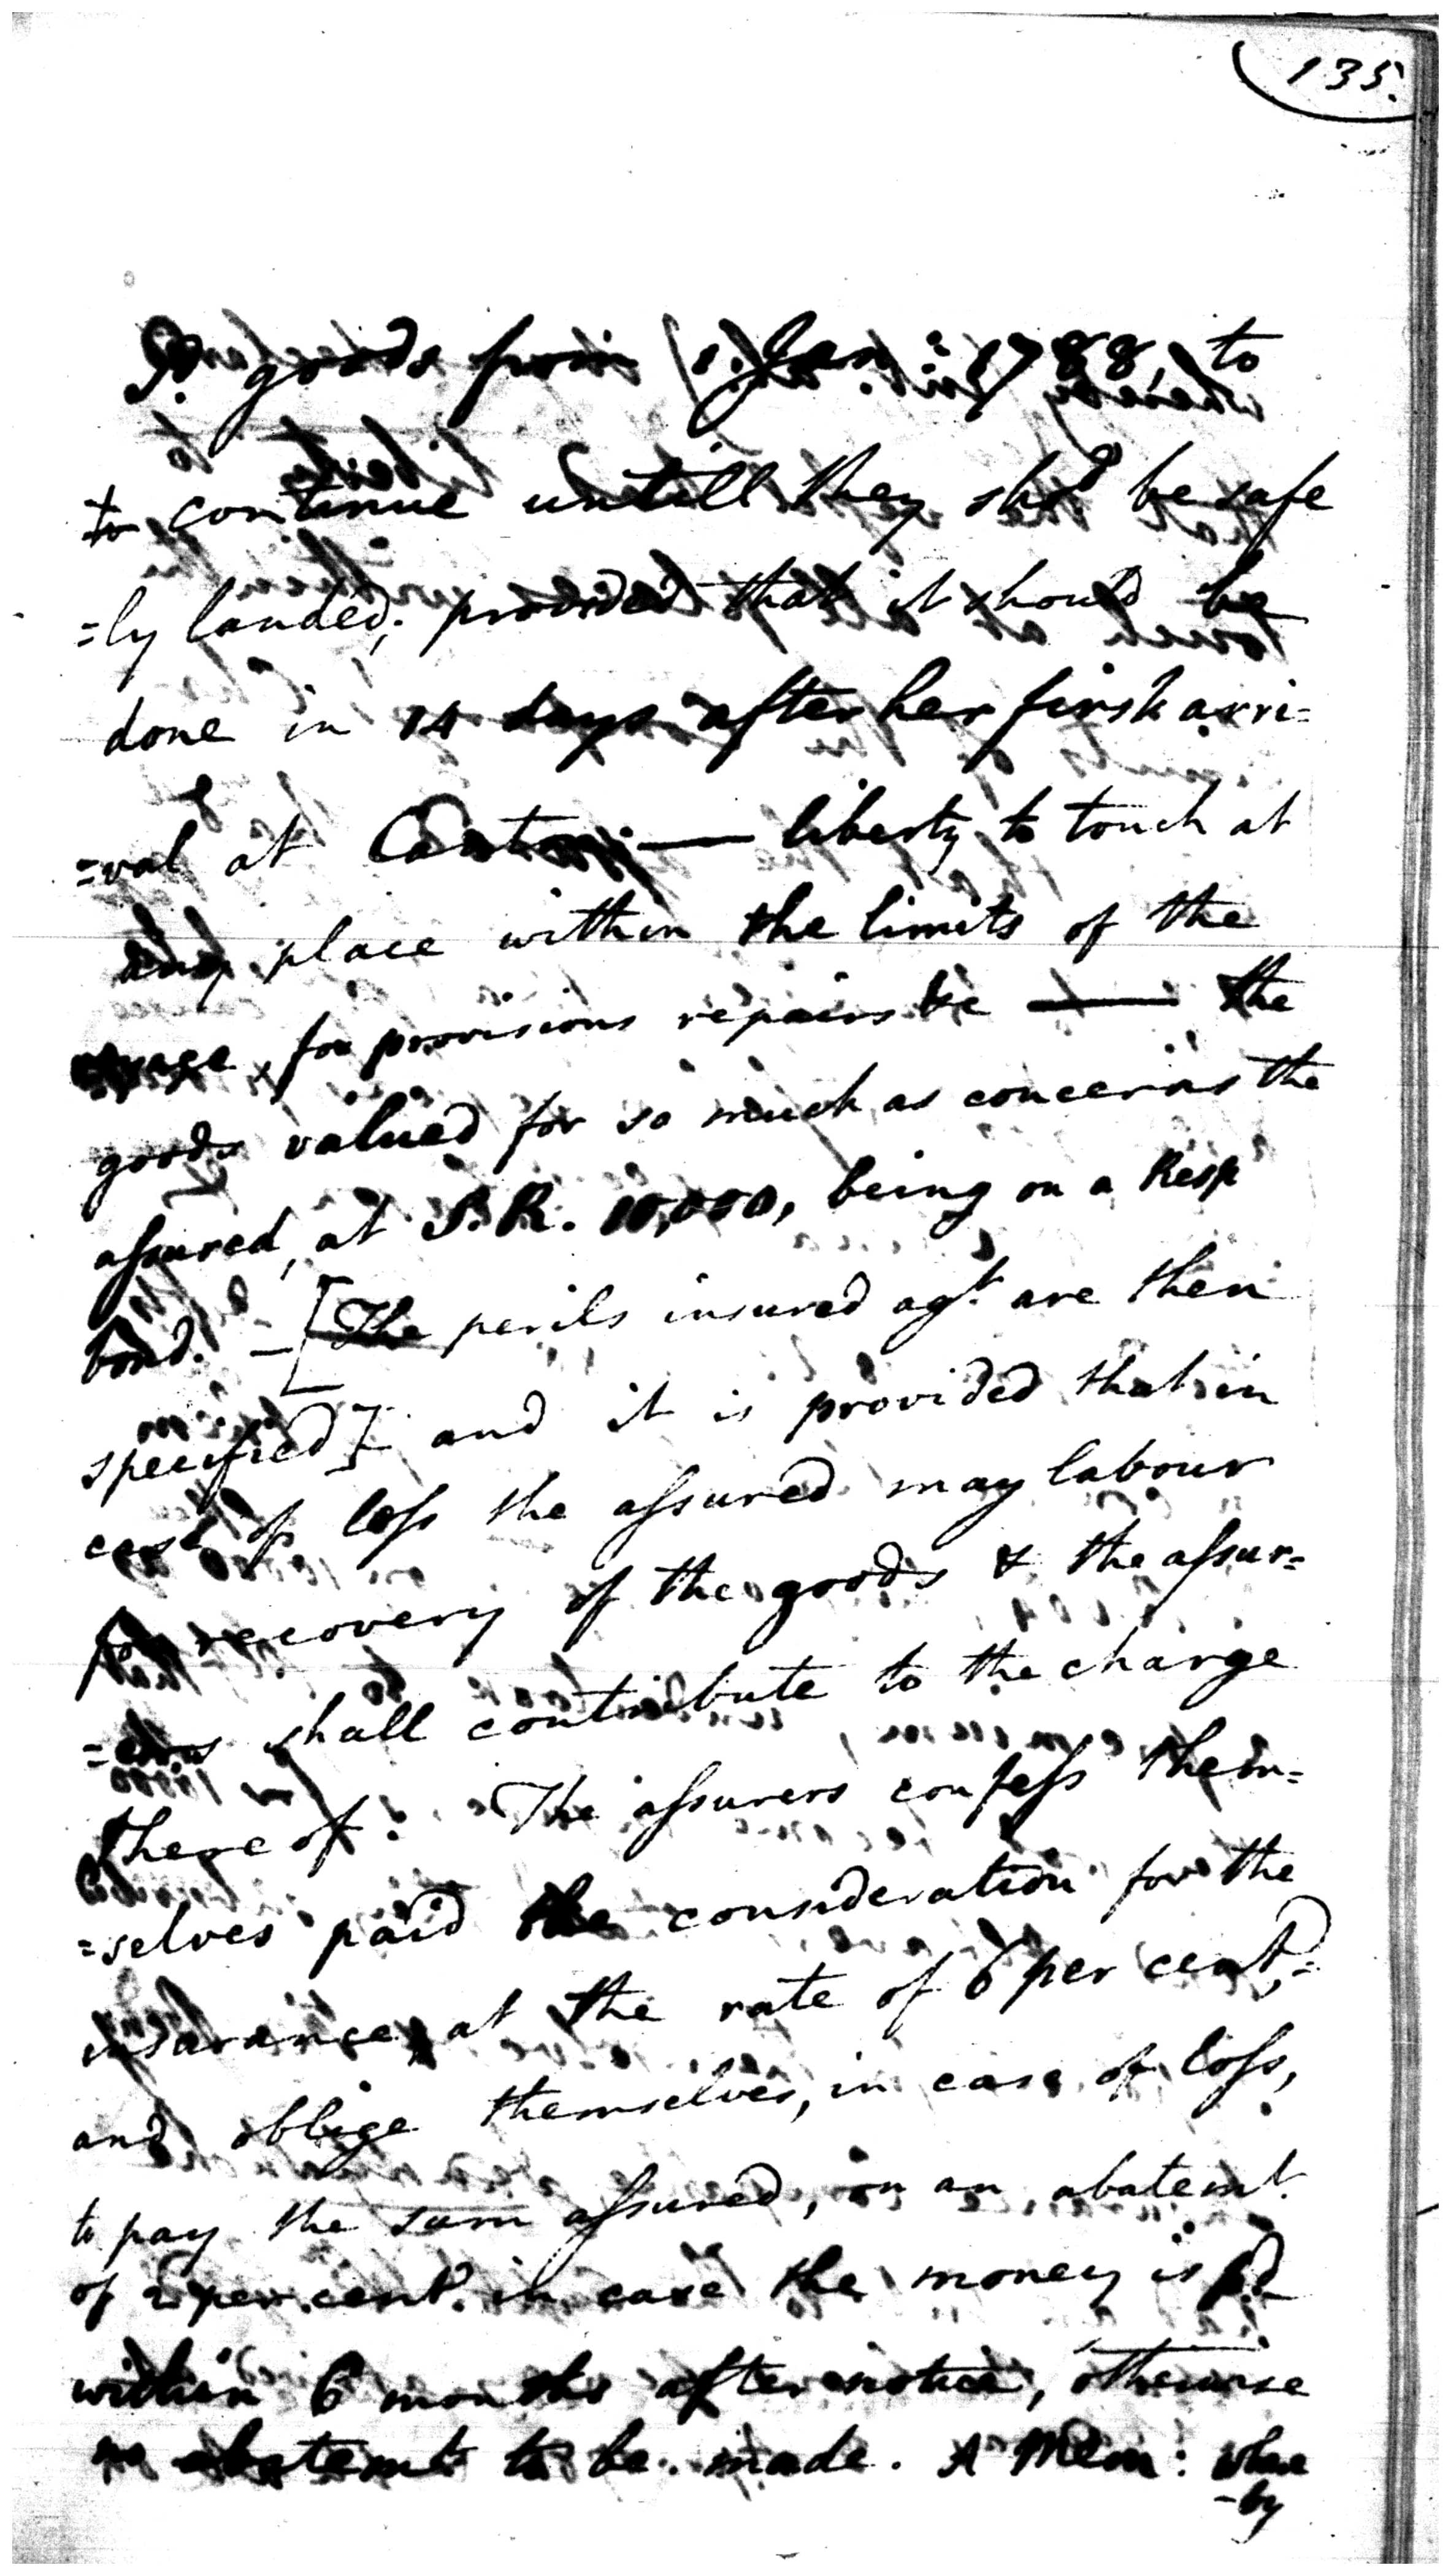 135.
Sd. goods from 1. Jan: 1788, to
to continue untill they shd. be safe
=ly landed; provided that it should be
done in 14 days after her first arri=
=val at Canton; — liberty to touch at
any place within the limits of the
voyage for provisions repairs &c — the
goods valued for so much as concerns the
assured, at S.R. 10,000, being on a Resp
bond. — [The perils insured agt. are then
specified] and it is provided that in
case of loss the assured may labour
for recovery of the goods & the assur=
=ers shall contribute to the charge
thereof. The assurers confess them=
=selves paid the consideration for the
insurance, at the rate of 6 per cent;=
and oblige themselves, in case of loss,
to pay the sum assured, on an abatemt.
of 2 per cent. in case the money is pd
within 6 months after notice, otherwise
no abatemt to be made. A Mem: where
-by